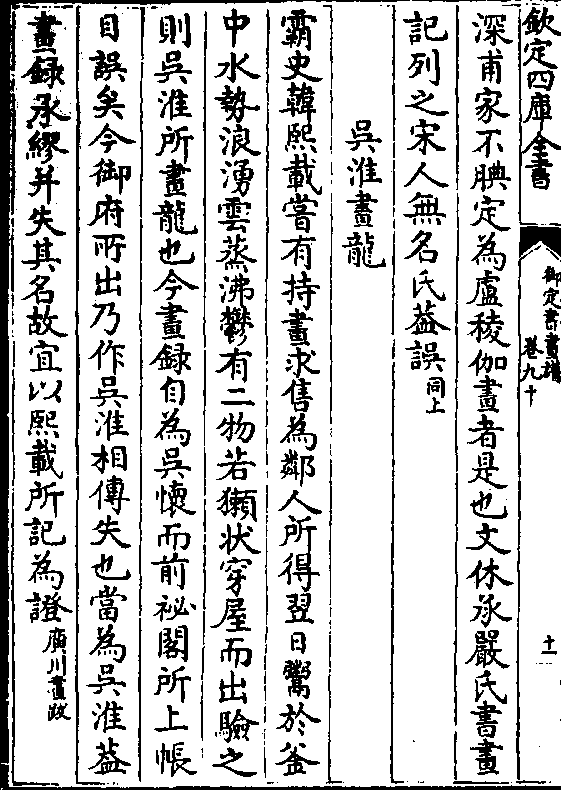 欽定四庫全書
御定書畫譜
卷九十
十一
深甫家不腆定為盧稜伽畫者是也文休承嚴氏書畫
記列之宋人無名氏葢誤同上
吳淮畫龍
霸史韓熙載嘗有持畫求售為鄰人所得翌日鬻於釜
中水勢浪湧雲蒸沸鬱有二物若獺狀穿屋而出驗之
則吳淮所畫龍也今畫録自為吳懷而前祕閣所上帳
目誤矣今御府所出乃作吳淮相傳失也當為吳淮葢
畫録承繆并失其名故宜以熙載所記為證廣川畫跋